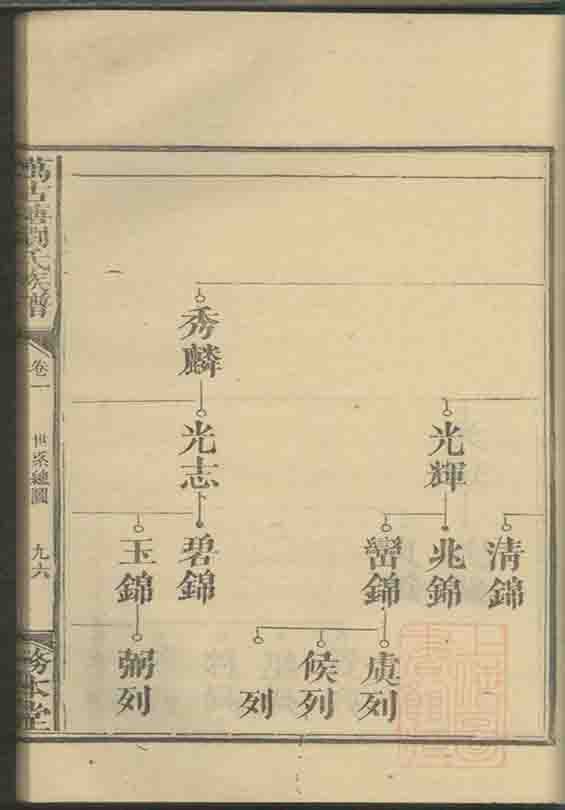 秀麟
光輝
光志
清錦
兆錦
巒錦
碧錦
玉錦
虞列
候列
列
弼列
氏族譜
卷一
世系總圖
九六
務本堂